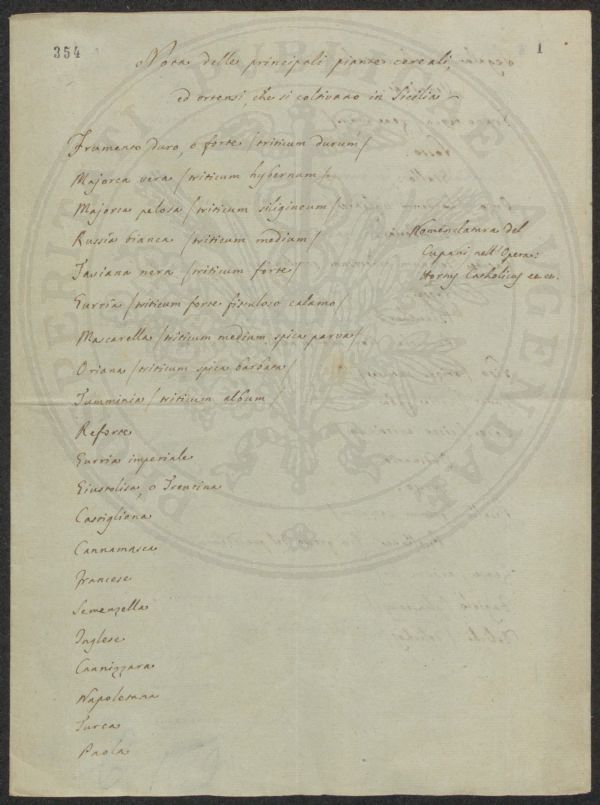 354
1
Nota delle principali piante cereali,
ed ortensi, che si coltivano in Sicilia
Frumento duro, o forte /triticum durum/
Majorca vera /triticum hybernum/
Majorca pelosa /triticum siligineum/
Russia bianca /triticum medium/
Nomenclatura del
Cupani nell'Opera:
Hortus Catholicus ec. ec.
nera /triticum forte/
/triticum forte fistuloso calamo/
Mascarella /triticum medium spica parva/
Oriana /triticum spica barbata/
Tumminia /triticum album/
Reforte
imperiale
Giustalisa, o Trentina
Castigliana
Cannamasca
Francese
Semenzella
Inglese
Cannizzara
Napoletana
Turca
Paola